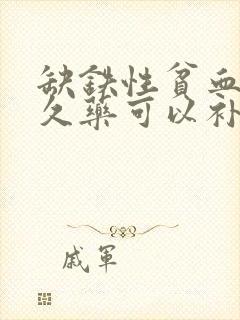 缺铁性贫血
久药可以补
戚軍